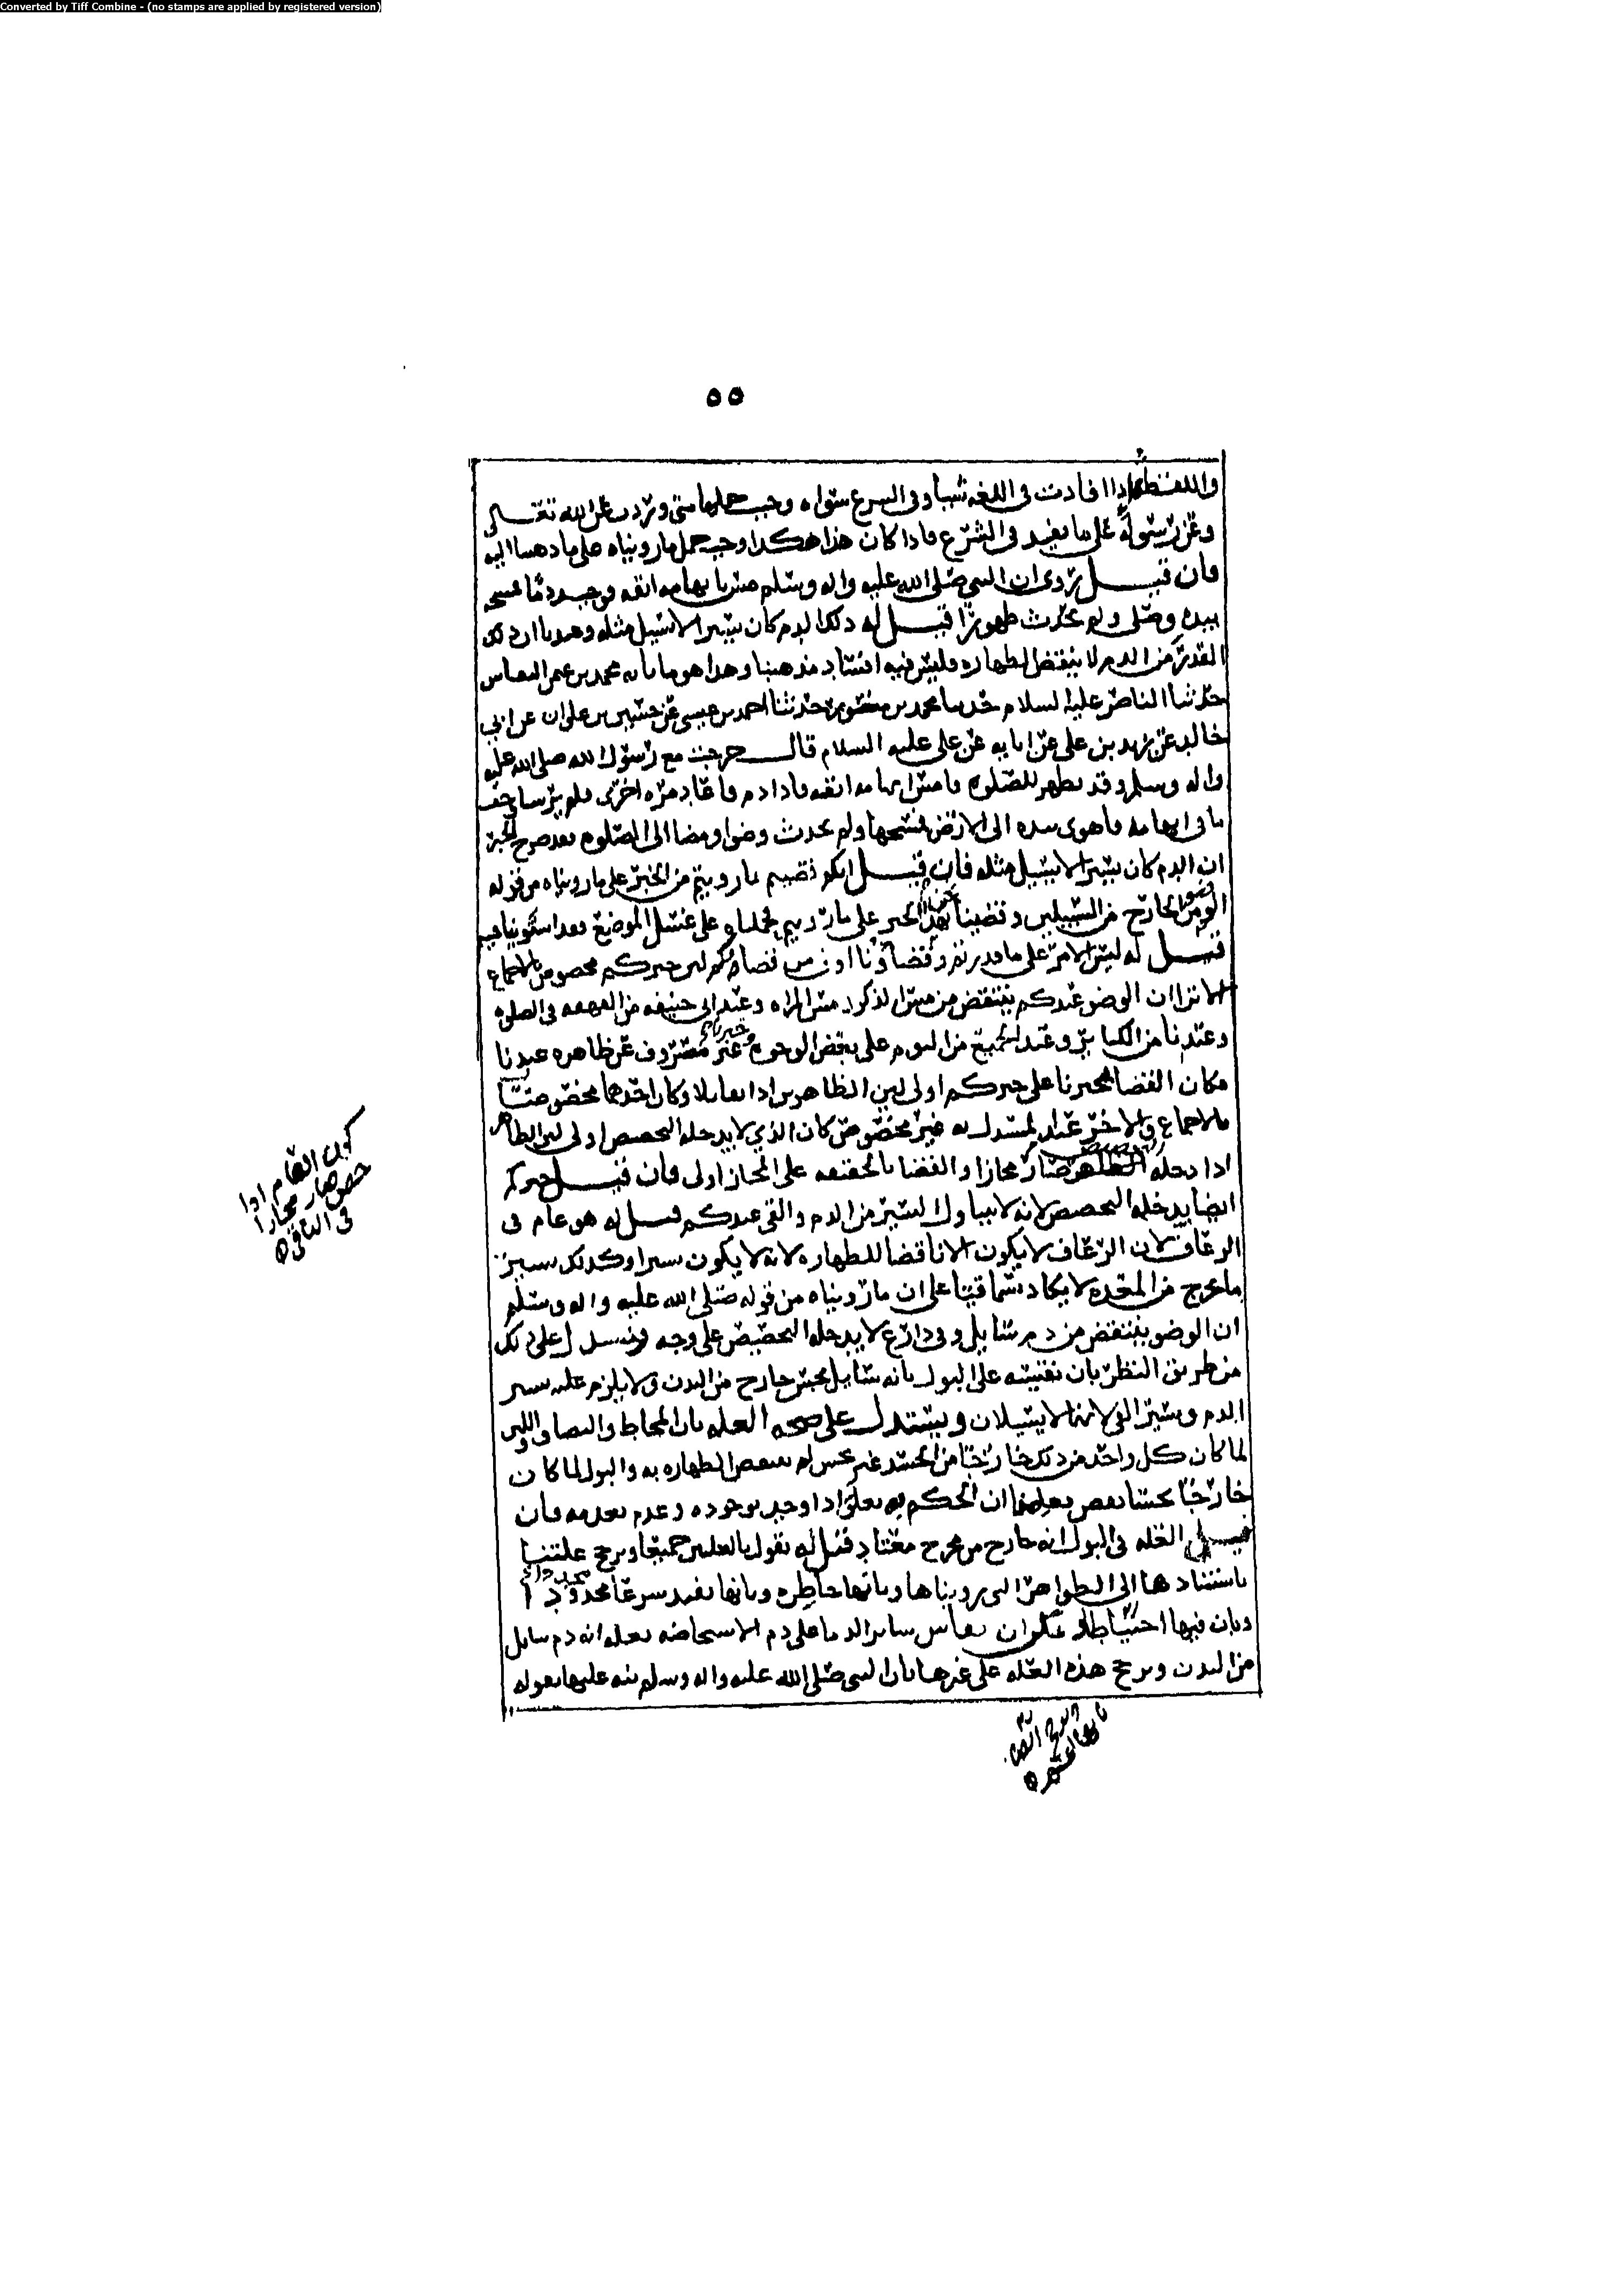 Converted by Tiff Combine - (no stamps are applied by registered version)
٥٥
واللفظة اذا افادت فى اللغه شيا وفى السرع سواه وجب حملها متى وردت عن الله تعالى
وعن رسوله على ما تفيد فى الشرع فاذا كان هذا هكذا وجب حمل ما رويناه على ما ذهبنا اليه
فان قيل روى ان النبي صلى الله عليه واله وسلم مس بابهامه انفه فوجد دما فمسحه
بيده وصلى ولم يحدث طهورا قيل له ذلك الدم كان يسيرا لا يسيل مثله وعندنا ان ذلك
القدر من الدم لا ينقض الطهاره وليس فيه افساد مذهبنا وهذا هو ما نا به محمد بن عمر
حدثنا الناصر عليه السلام حدثنا محمد بن منصور حدثنا احمد بن عيسى عن حسين بن علوان عن ابي
خالد عن زيد بن على عن ابايه عن على عليه السلام قال خرجت مع رسول الله صلى الله عليه
واله وسلم وقد تطهر للصلوه فامس ابهامه انفه فاذا دم فاعاد مره اخرى فلم ير شيا وجف
ما فى ابهامه فاهوى بيده الى الارض فمسحها ولم يحدث وضوا ومضا الى الصلوه فقد صرح الخبر
ان الدم كان يسيرا لا يسيل مثله فان قيل انكم قضيتم بما رويتم من الخبر على ما رويناه من قوله
الوضو من الخارج من السبيلين وقضينا نحن بهذا الخبر على ما رويتم فحملناه على غسل الموضع فقد استوينا فيه
قيل له ليس الامر على ما قدرتم وقضاونا اولى من قضائكم لان خبركم مخصوص بالاجماع
الا ترا ان الوضو عندكم ينتقض من مس الذكر ومس المراه وعند ابي حنيفه من القهقهه فى الصلوه
وعندنا من الكباير وعند الجميع من النوم على بعض الوجوه وخبرنا غير مصروف عن ظاهره عندنا
فكان القضا بخبرنا على خبركم اولى لان الظاهرين اذا تقابلا وكان احدهما مخصوصا
بالاجماع والاخر عند المستدل به غير مخصوص كان الذي لا يدخله التخصيص اولى لان الظاهر
اذا دخله التخصيص صار مجازا والقضا بالحقيقه على المجاز اولى فان قيل خبركم
ايضا يدخله التخصيص لانه لا يتناول اليسير من الدم والقى عندكم قيل له هو عام فى
الرعاف لان الرعاف لا يكون الا ناقضا للطهاره لانه لا يكون يسيرا وكذلك يسير
ما يخرج من المعده لا يكاد يسما قيا على ان ما رويناه من قوله صلى الله عليه واله وسلم
ان الوضو ينتقض من دم سايل وقى ذارع لا يدخله التخصيص على وجه ونستدل على ذلك
من طريق النظر بان نقيسه على البول بانه سايل نجس خارج من البدن ولا يلزم عليه يسير
الدم ويسير القى لانهما لا يسيلان ويستدل على صحه العله بان المخاط والبصاق واللبن
لما كان كل واحد من ذلك خارجا من الجسد غير نجس لم تنتقض الطهاره به والبول لما كان
خارجا نجسا نقض فعلمنا ان الحكم به تعلق اذا وجد بوجوده وعدم بعدمه فان
قيل العله فى البول انه خارج من مخرج معتاد قيل له نقول بالعلتين جميعا ونرجح علتنا
باستنادها الى الظواهر التى رويناها وبانها حاظره وبانها تفيد شرعا مجددا
وبان فيها احتياطا وعلى ان نقاس ساير الدما على دم الاستحاضه بعله انه دم سايل
من البدن ونرجح هذه العله على غيرها بان النبى صلى الله عليه واله وسلم نبه عليها بقوله
كون العام اذا
خص صار مجازا
فى الباقى